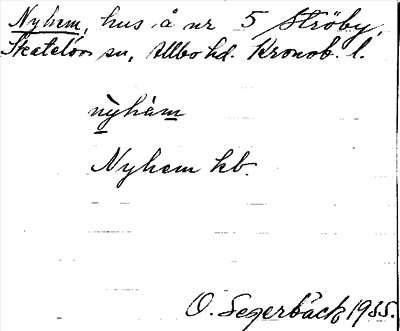 Nyhem, hus å nr 5 Ströby,
Skatelövs sn, Allbo hd. Kronob. l.
nỳhèm
Nyhem kb.
O. Segerbäck 1935.